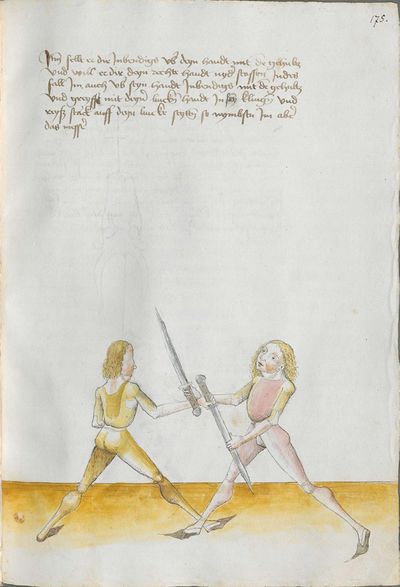 175.
Item felt er dir Inbendigs vb' dayn handt mit der gehultz
vnd will er dir dayn rechte handt nyd' stossen Indes
fall Im auch vb' seyn handt Inbendigs mit de gehultz
vnd greyff mit dayn' lincken handt In seyn klingen vnd
reysz starck auff dayn lincke seytten so nymbstu Im aber
das messer